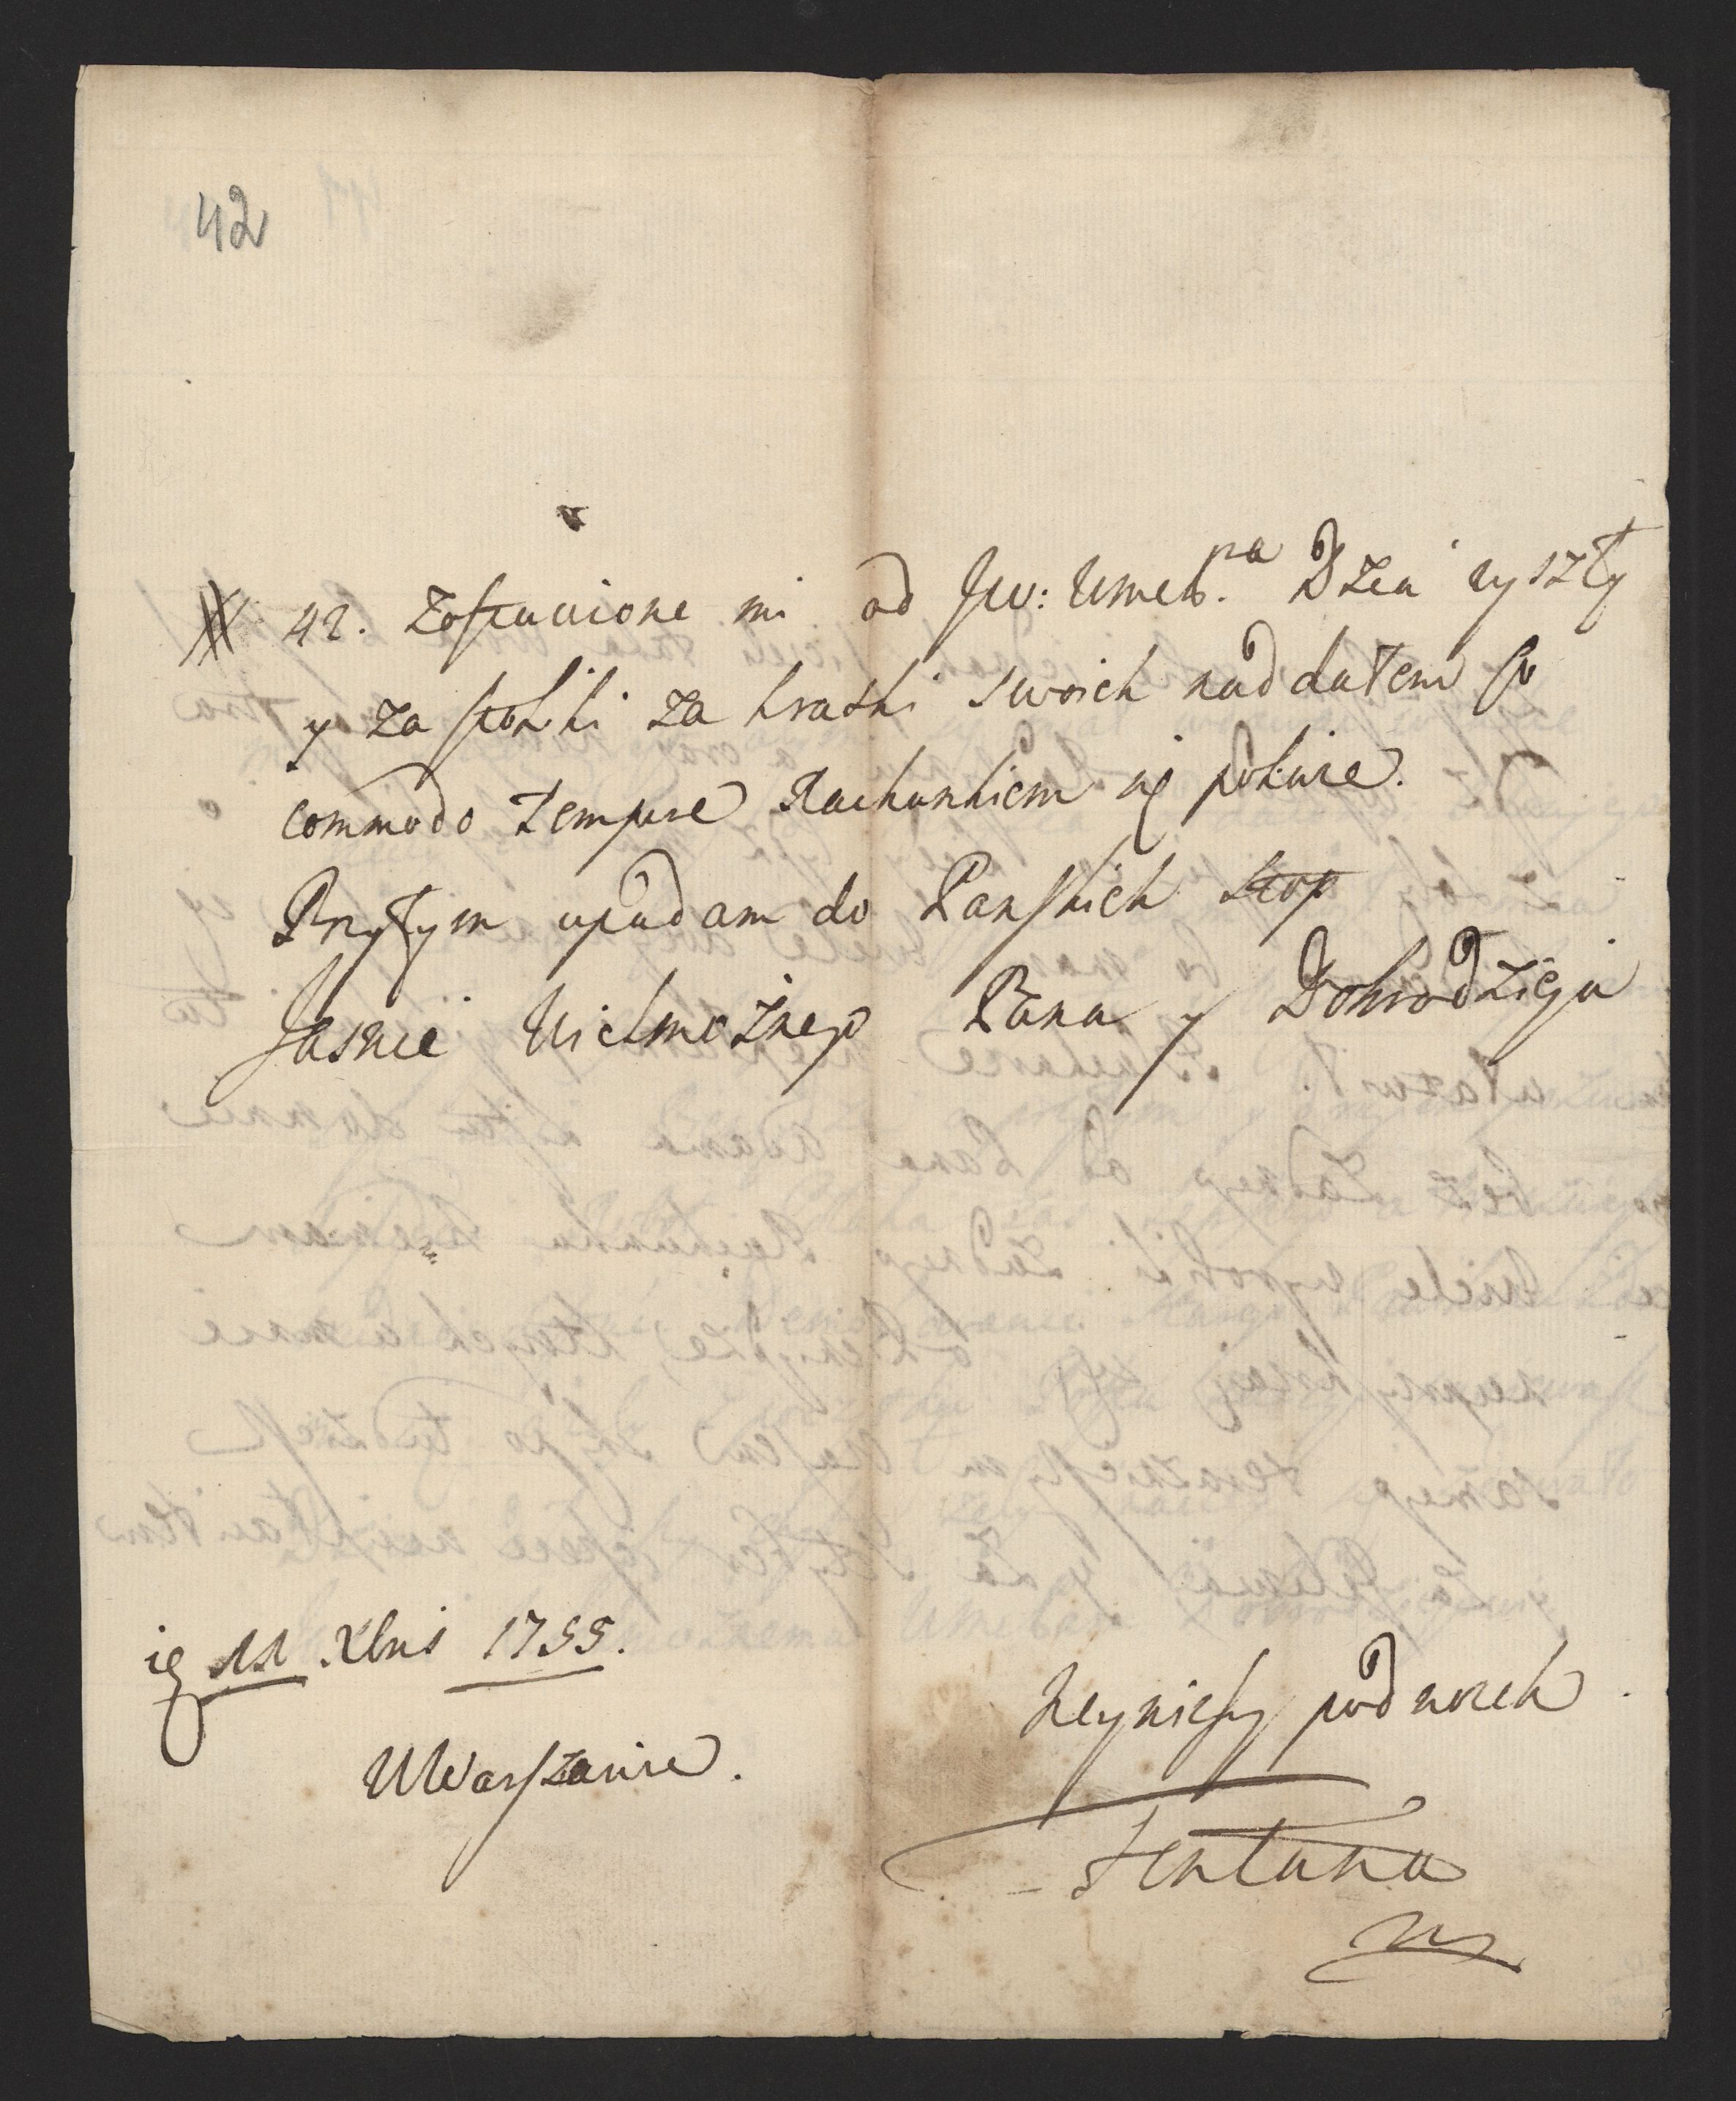 42
# 42. Zostawione mi od JW: Wmeo. pa Dzea ryszty
y za stołki za kratki swoich naddałem
commodo tempore Rachunkiem się pokaże.
Przytym upadam do Panskich stop
Jasnie Wielmożnego Pana y Dobrodzieja
11 Xbris 1755.
WWarszawie.
nayniższy podnożek
Fontana
mp